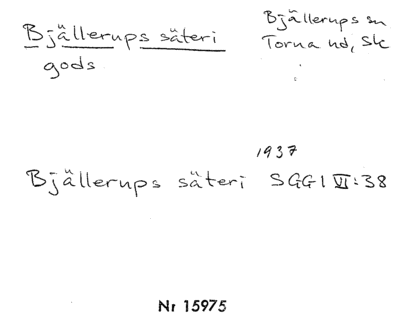 Bjällerups säteri
gods
Bjällerups sn
Torna hd, Sk
1937
Bjällerups säteri SGGI VI:38
Nr 15975